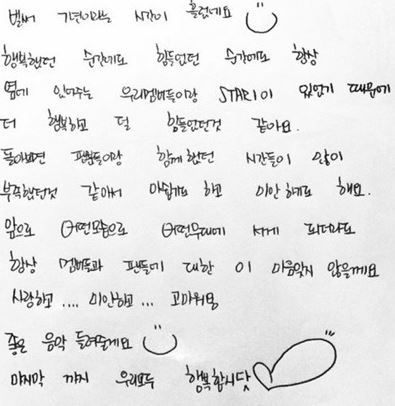 벌써 기념이라는 시간이 흘렀네요
행복했던 순간에도 힘들었던 순간에도 항상
옆에 있어주는 우리멤버들이랑 STAR이 있었기 때문에
더 행복하고 덜 힘들었던것 같아요.
돌아보면 팬분들이랑 함께했던 시간들이 많이
부족했던것 같아서 아쉽기도 하고 미안하기도 해요.
앞으로 어떤모습으로 어떤무대에 서게 되더라도
항상 멤버들과 팬들에 대한 이 마음잊지 않을께요
사랑하고 .... 미안하고 ... 고마워요
좋은 음악 들려줄게요
마지막 까지 우리모두 행복합시닷